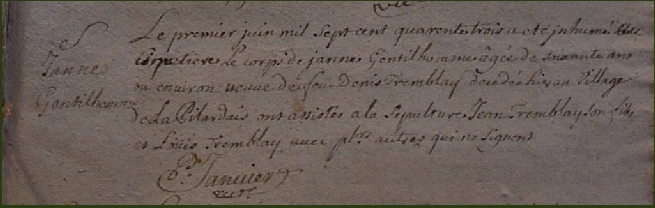 Janne
Gentilhomme
Le premier juin mil sept cent quarente trois a eté inhumé
cimetiere le corps de janne Gentilhomme âgée de soixante ans
ou environ veuve de feu Denis Tremblay décédée hier au village
de La Pilardais ont assistes a la sepulture Jean Tremblay son fils
et Loüis Tremblay avec plrs autres qui ne signent
Janvier